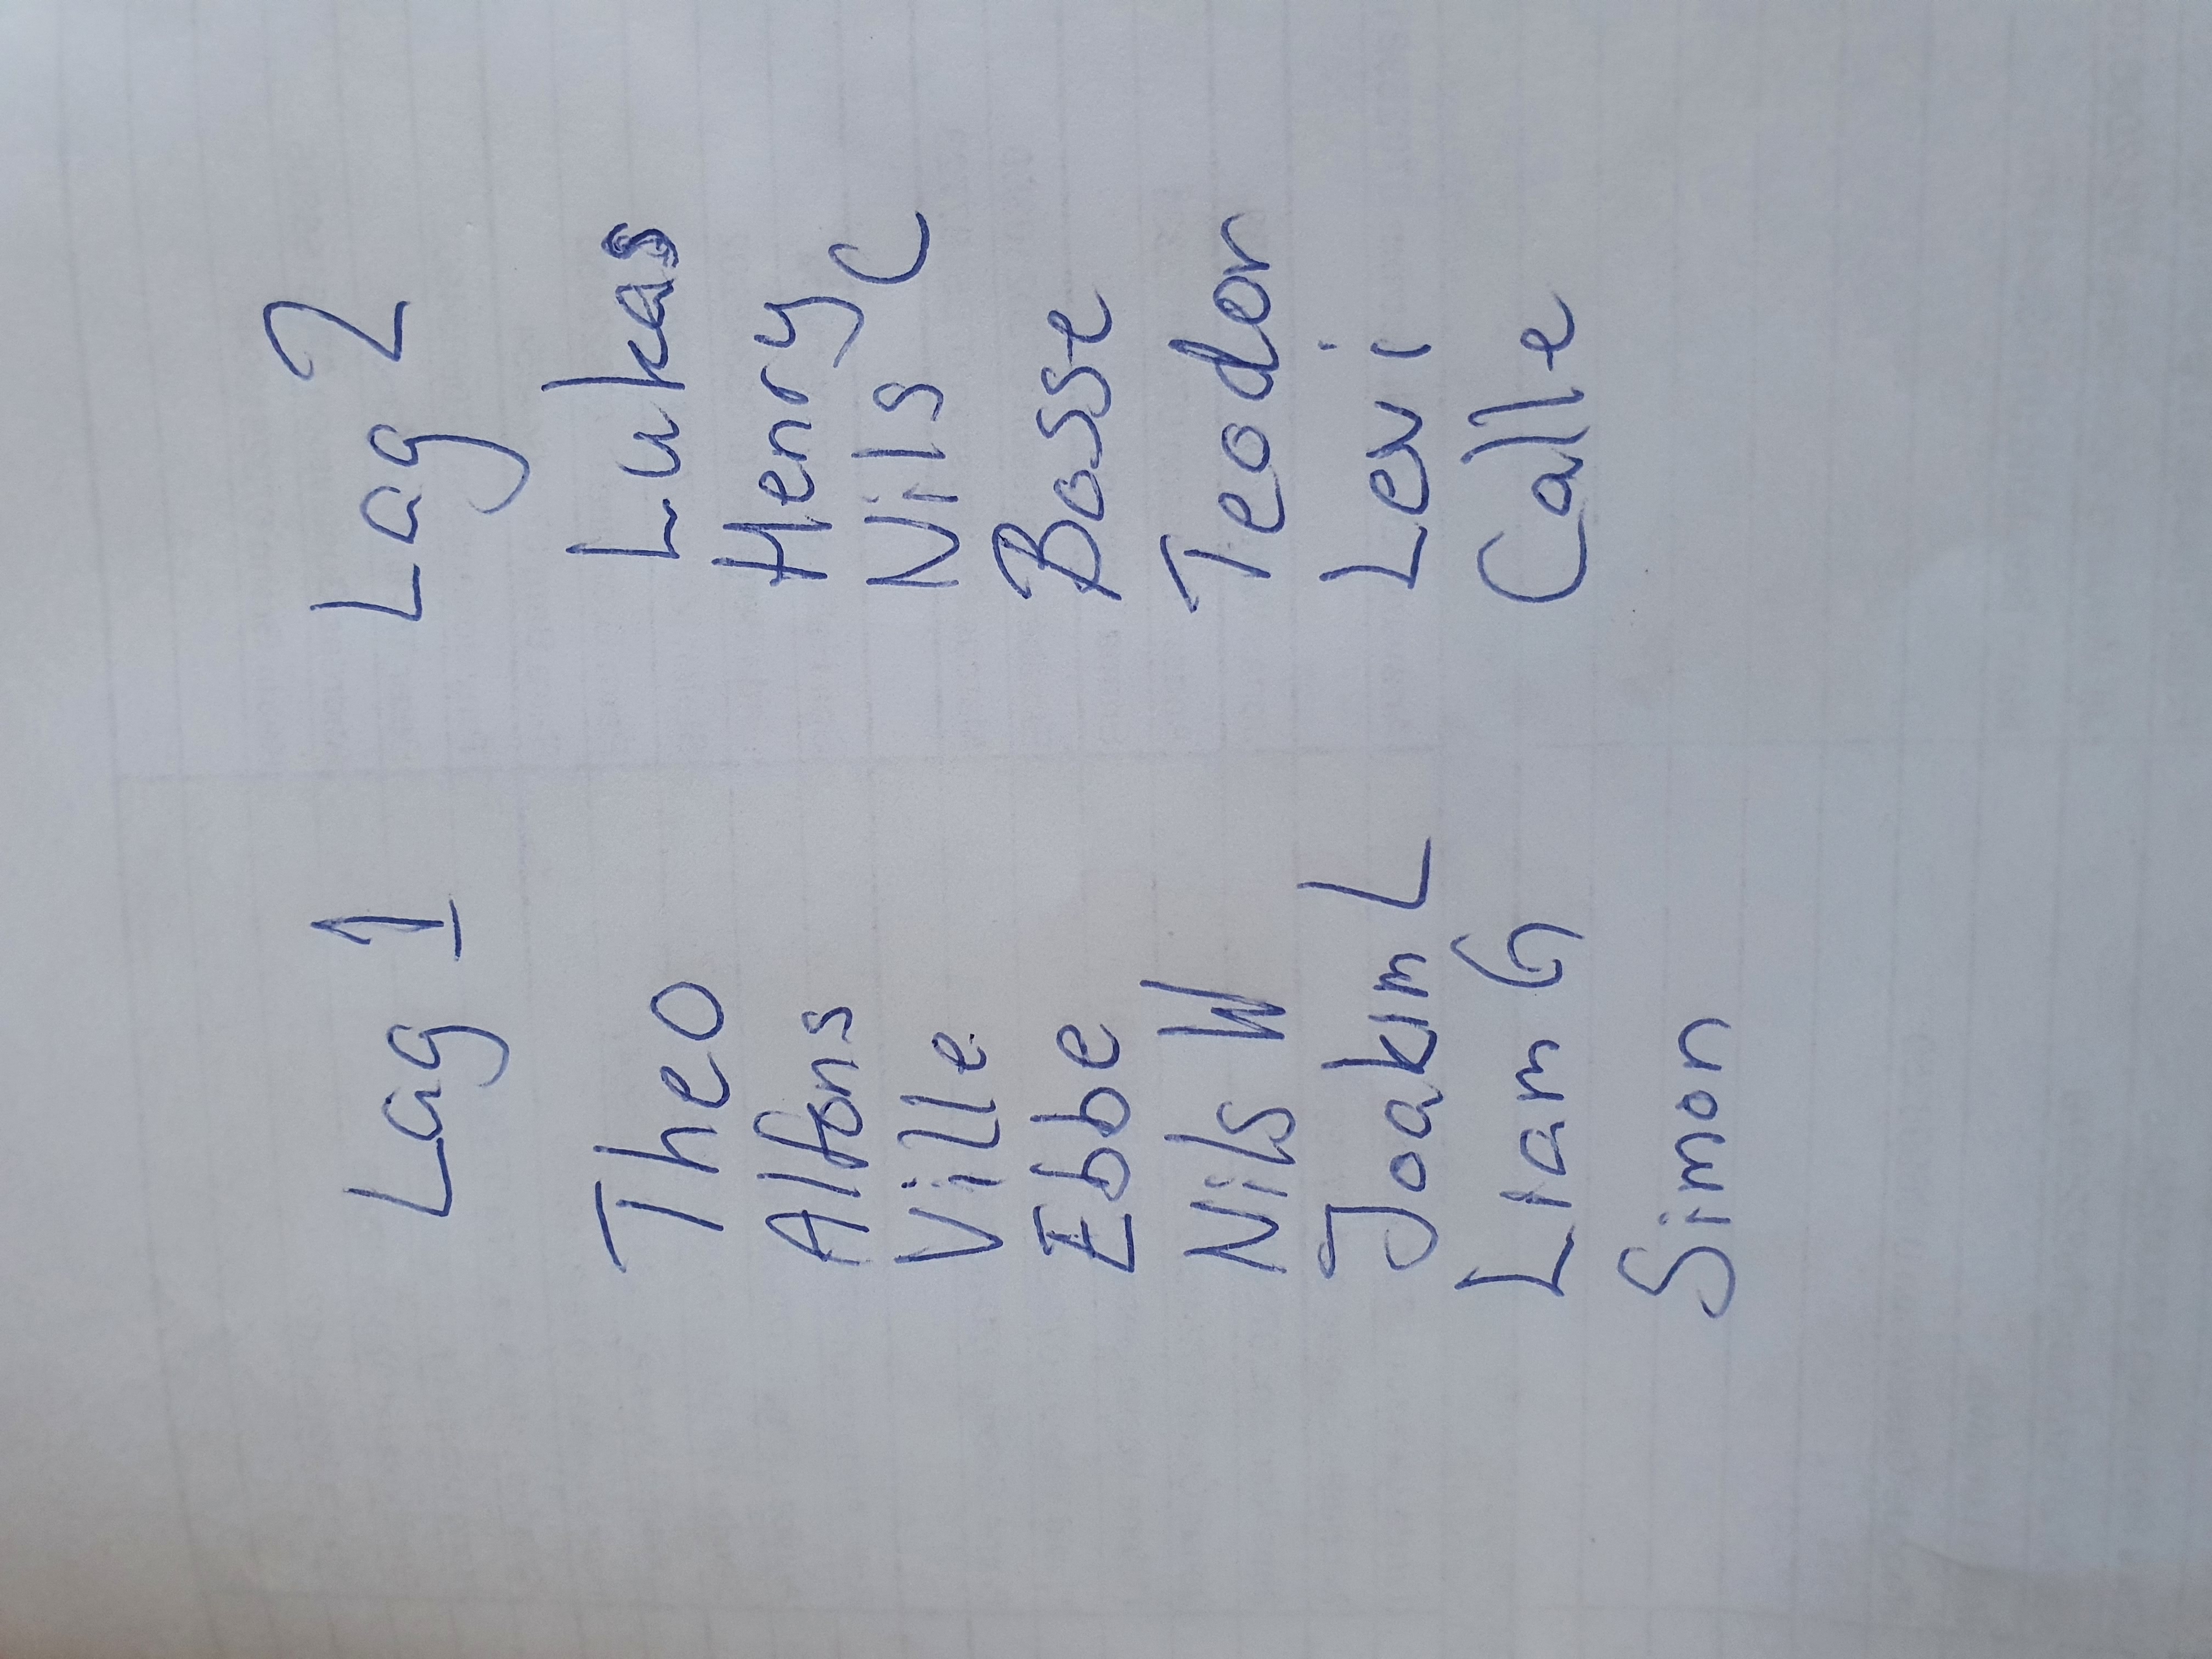 Lag 1
Theo
Alfons
Ville
Ebbe
Nils W
Joakim L
Liam G
Simon
Lag 2
Lukas
Henry
Nils C
Bosse
Teodor
Levi
Calle